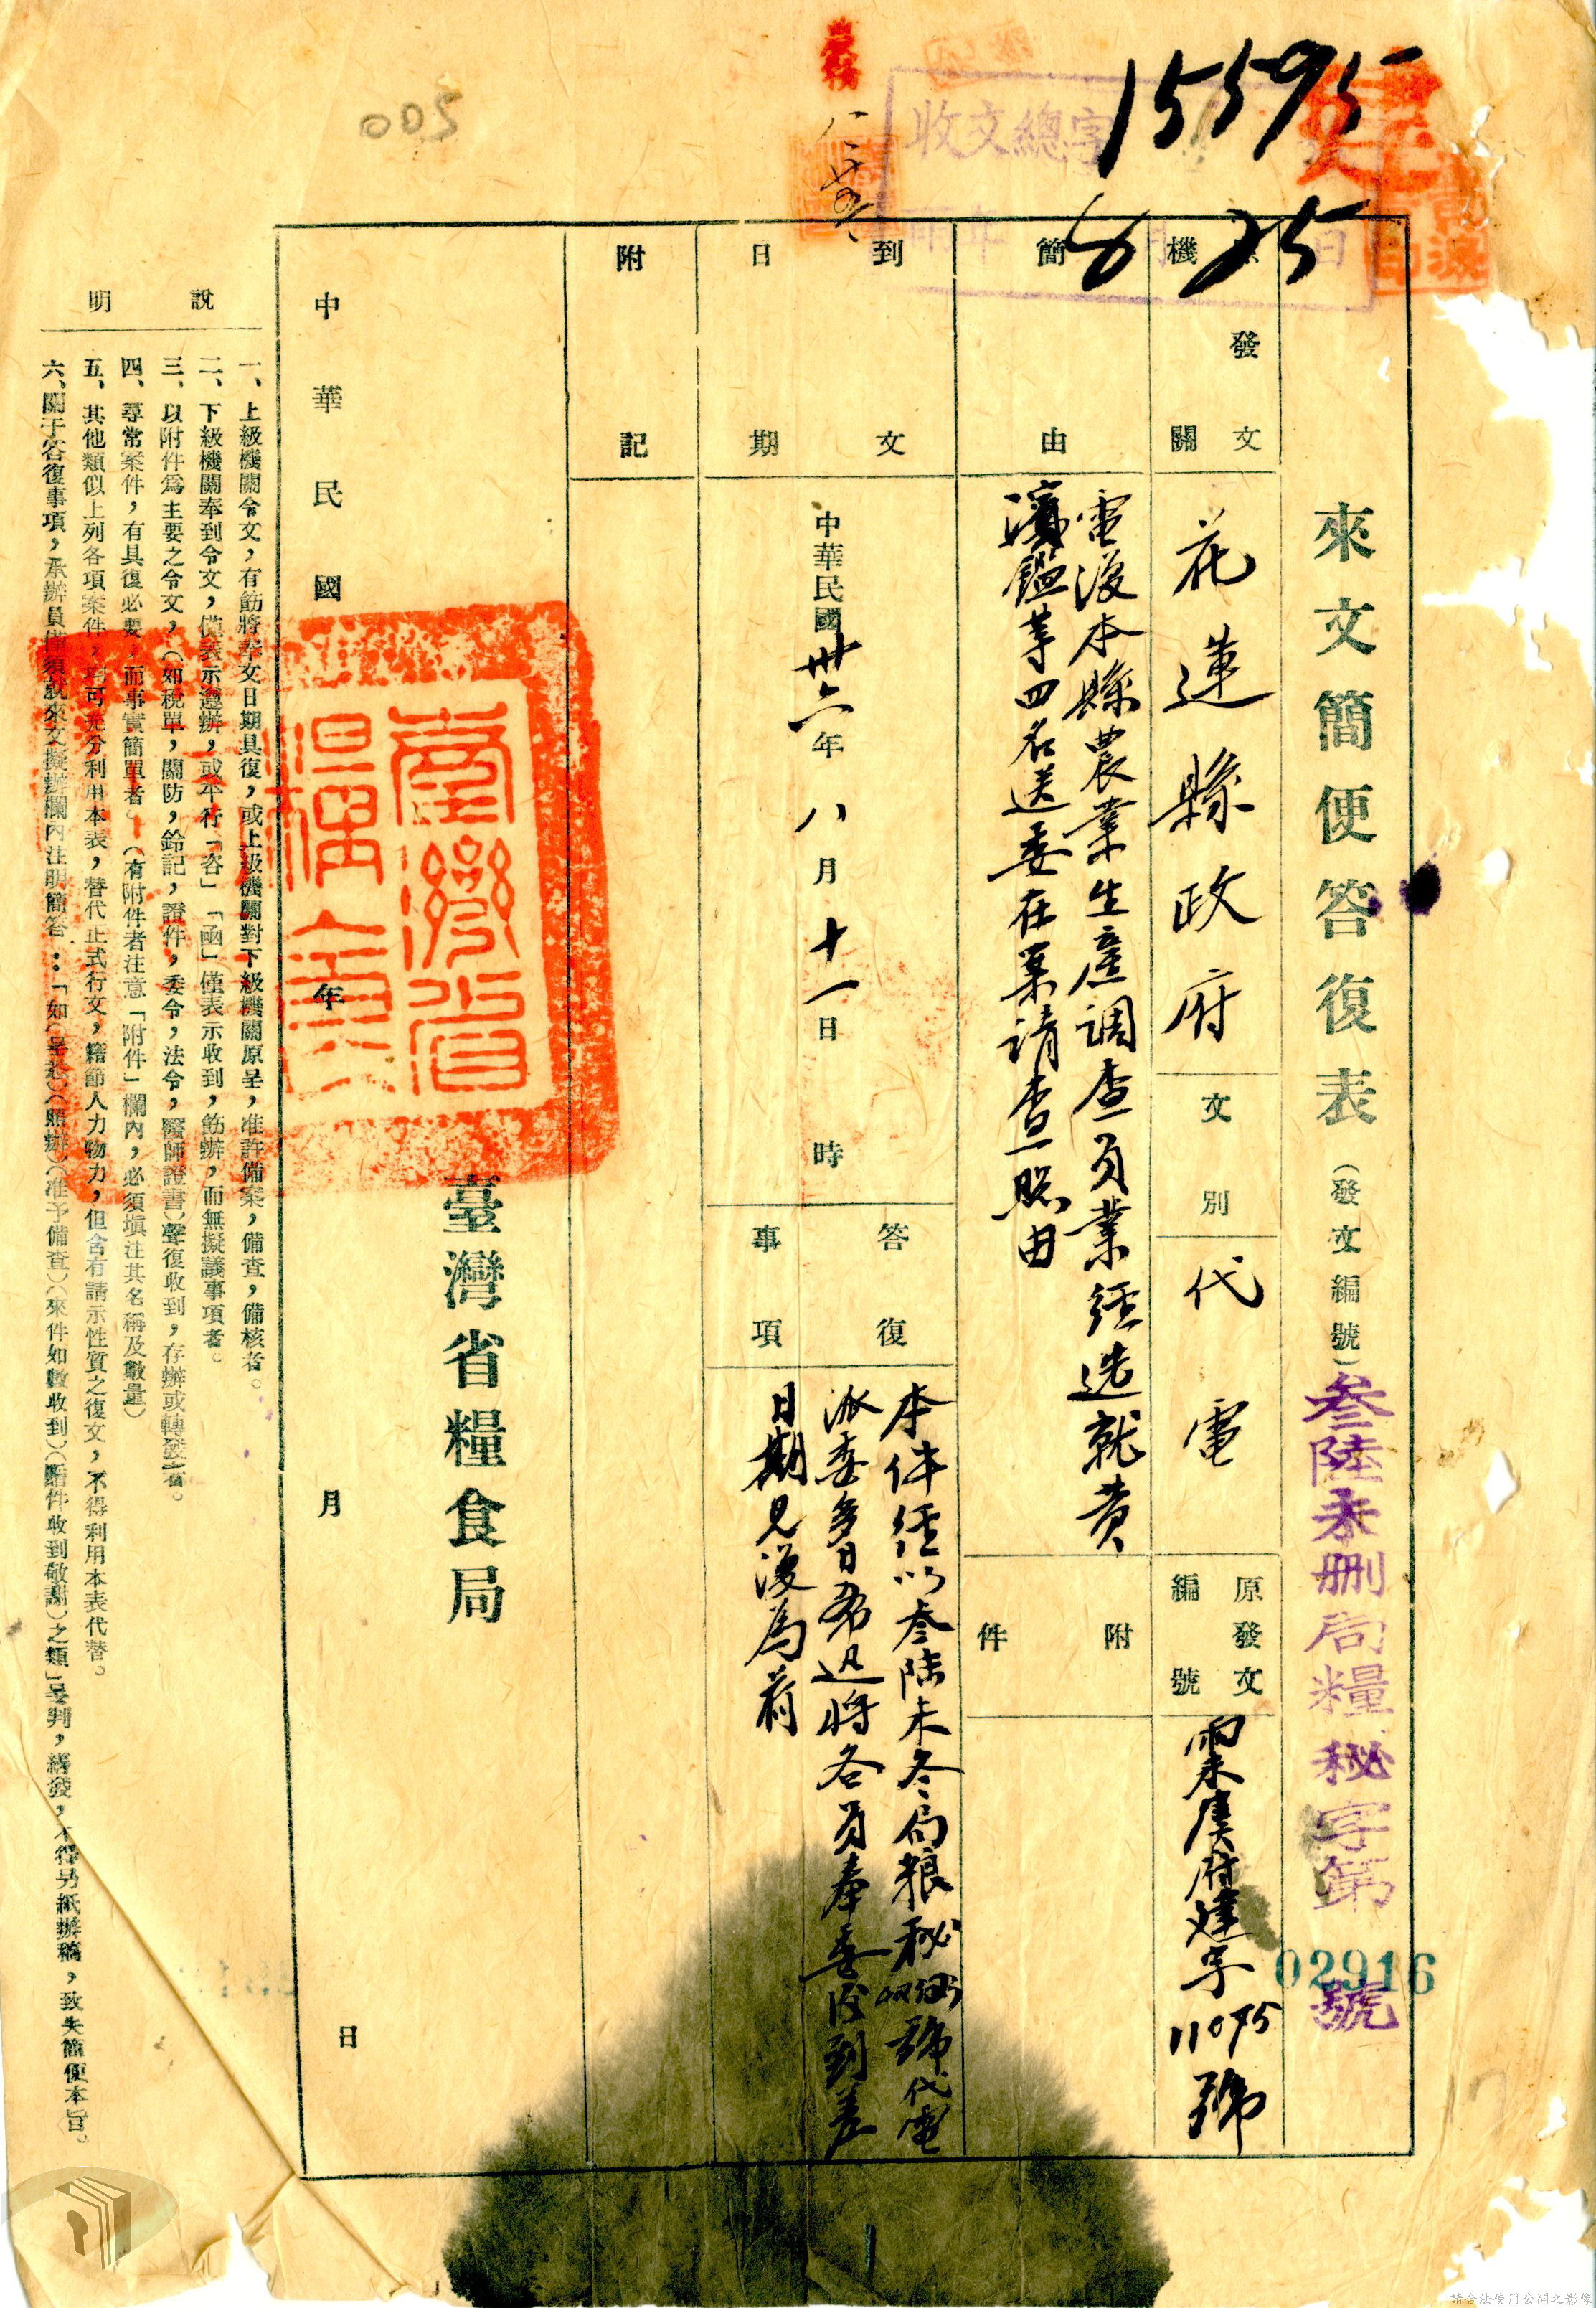 005
收文總字
15595
6 25
日
來文簡便答復表(發文編號)叁陸未刪局糧秘字第02916號
發文機關
花蓮縣政府
文別
代電
原發文編號
府建字11075號
簡由
電復本縣農業生產調查員業經造就黃
濱鑑等四名送委在案請查照由
附件
到文日期
中華民國卅六年八月十一日 時
答復事項
本件經以叁陸未冬局粮秘 號代電
派委多日希迅將各員奉委後到差
日期見復為荷
附記
臺灣省糧食局
中華民國 年 月 日
說明
一、上級機關令文,有筋將奉文日期具復,或上級機關對下級機關原呈,准許備案,備查,備核者。
二、下級機關奉到令文,僅表示遵辦,或平行「咨」「函」僅表示收到,筋辦,而無擬議事項者。
三、以附件爲主要之令文,(如稅單,關防,鈐記,證件,委令,法令,醫師證書)聲復收到,存辦或轉發者。
四、尋常案件,有具復必要,而事實簡單者。(有附件者注意「附件」欄內,必須塡注其名稱及數量)
五、其他類似上列各項案件,均可充分利用本表,替代正式行文,藉節人力物力,但含有請示性質之復文,不得利用本表代替。
六、關于答復事項,承辦員僅須就來文擬辦欄內注明簡答:「如(呈悉)(照辦)(准予備查)(來件如數收到)(贈件收到敬謝)之類」呈判,繕發,不得另紙辦稿,致失簡便本旨。
請合法使用公開之影像